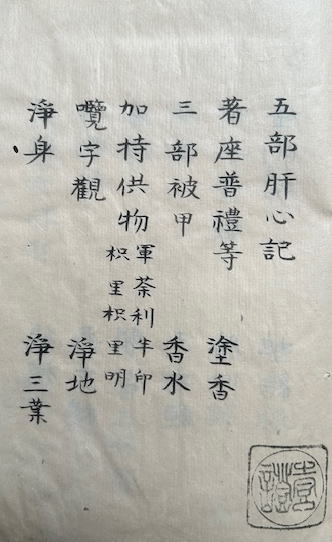 五部肝心記
著座普禮等 塗香
三部被甲 香水
加持供物 軍荼利半印
枳里枳里明
囕字觀 淨地
淨身 淨三業